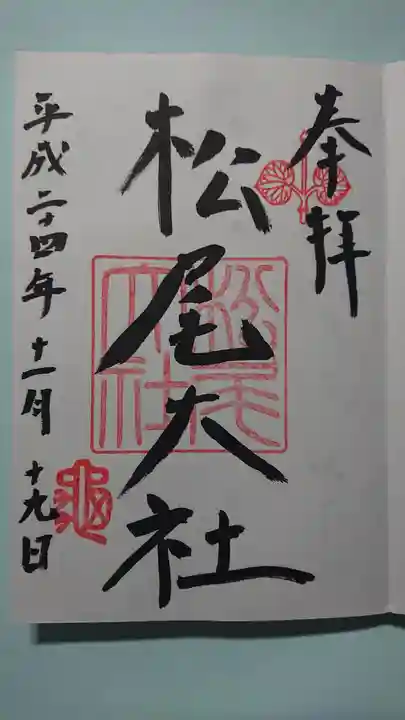 奉拝
松尾大社
松尾大社
平成二十四年十一月十九日